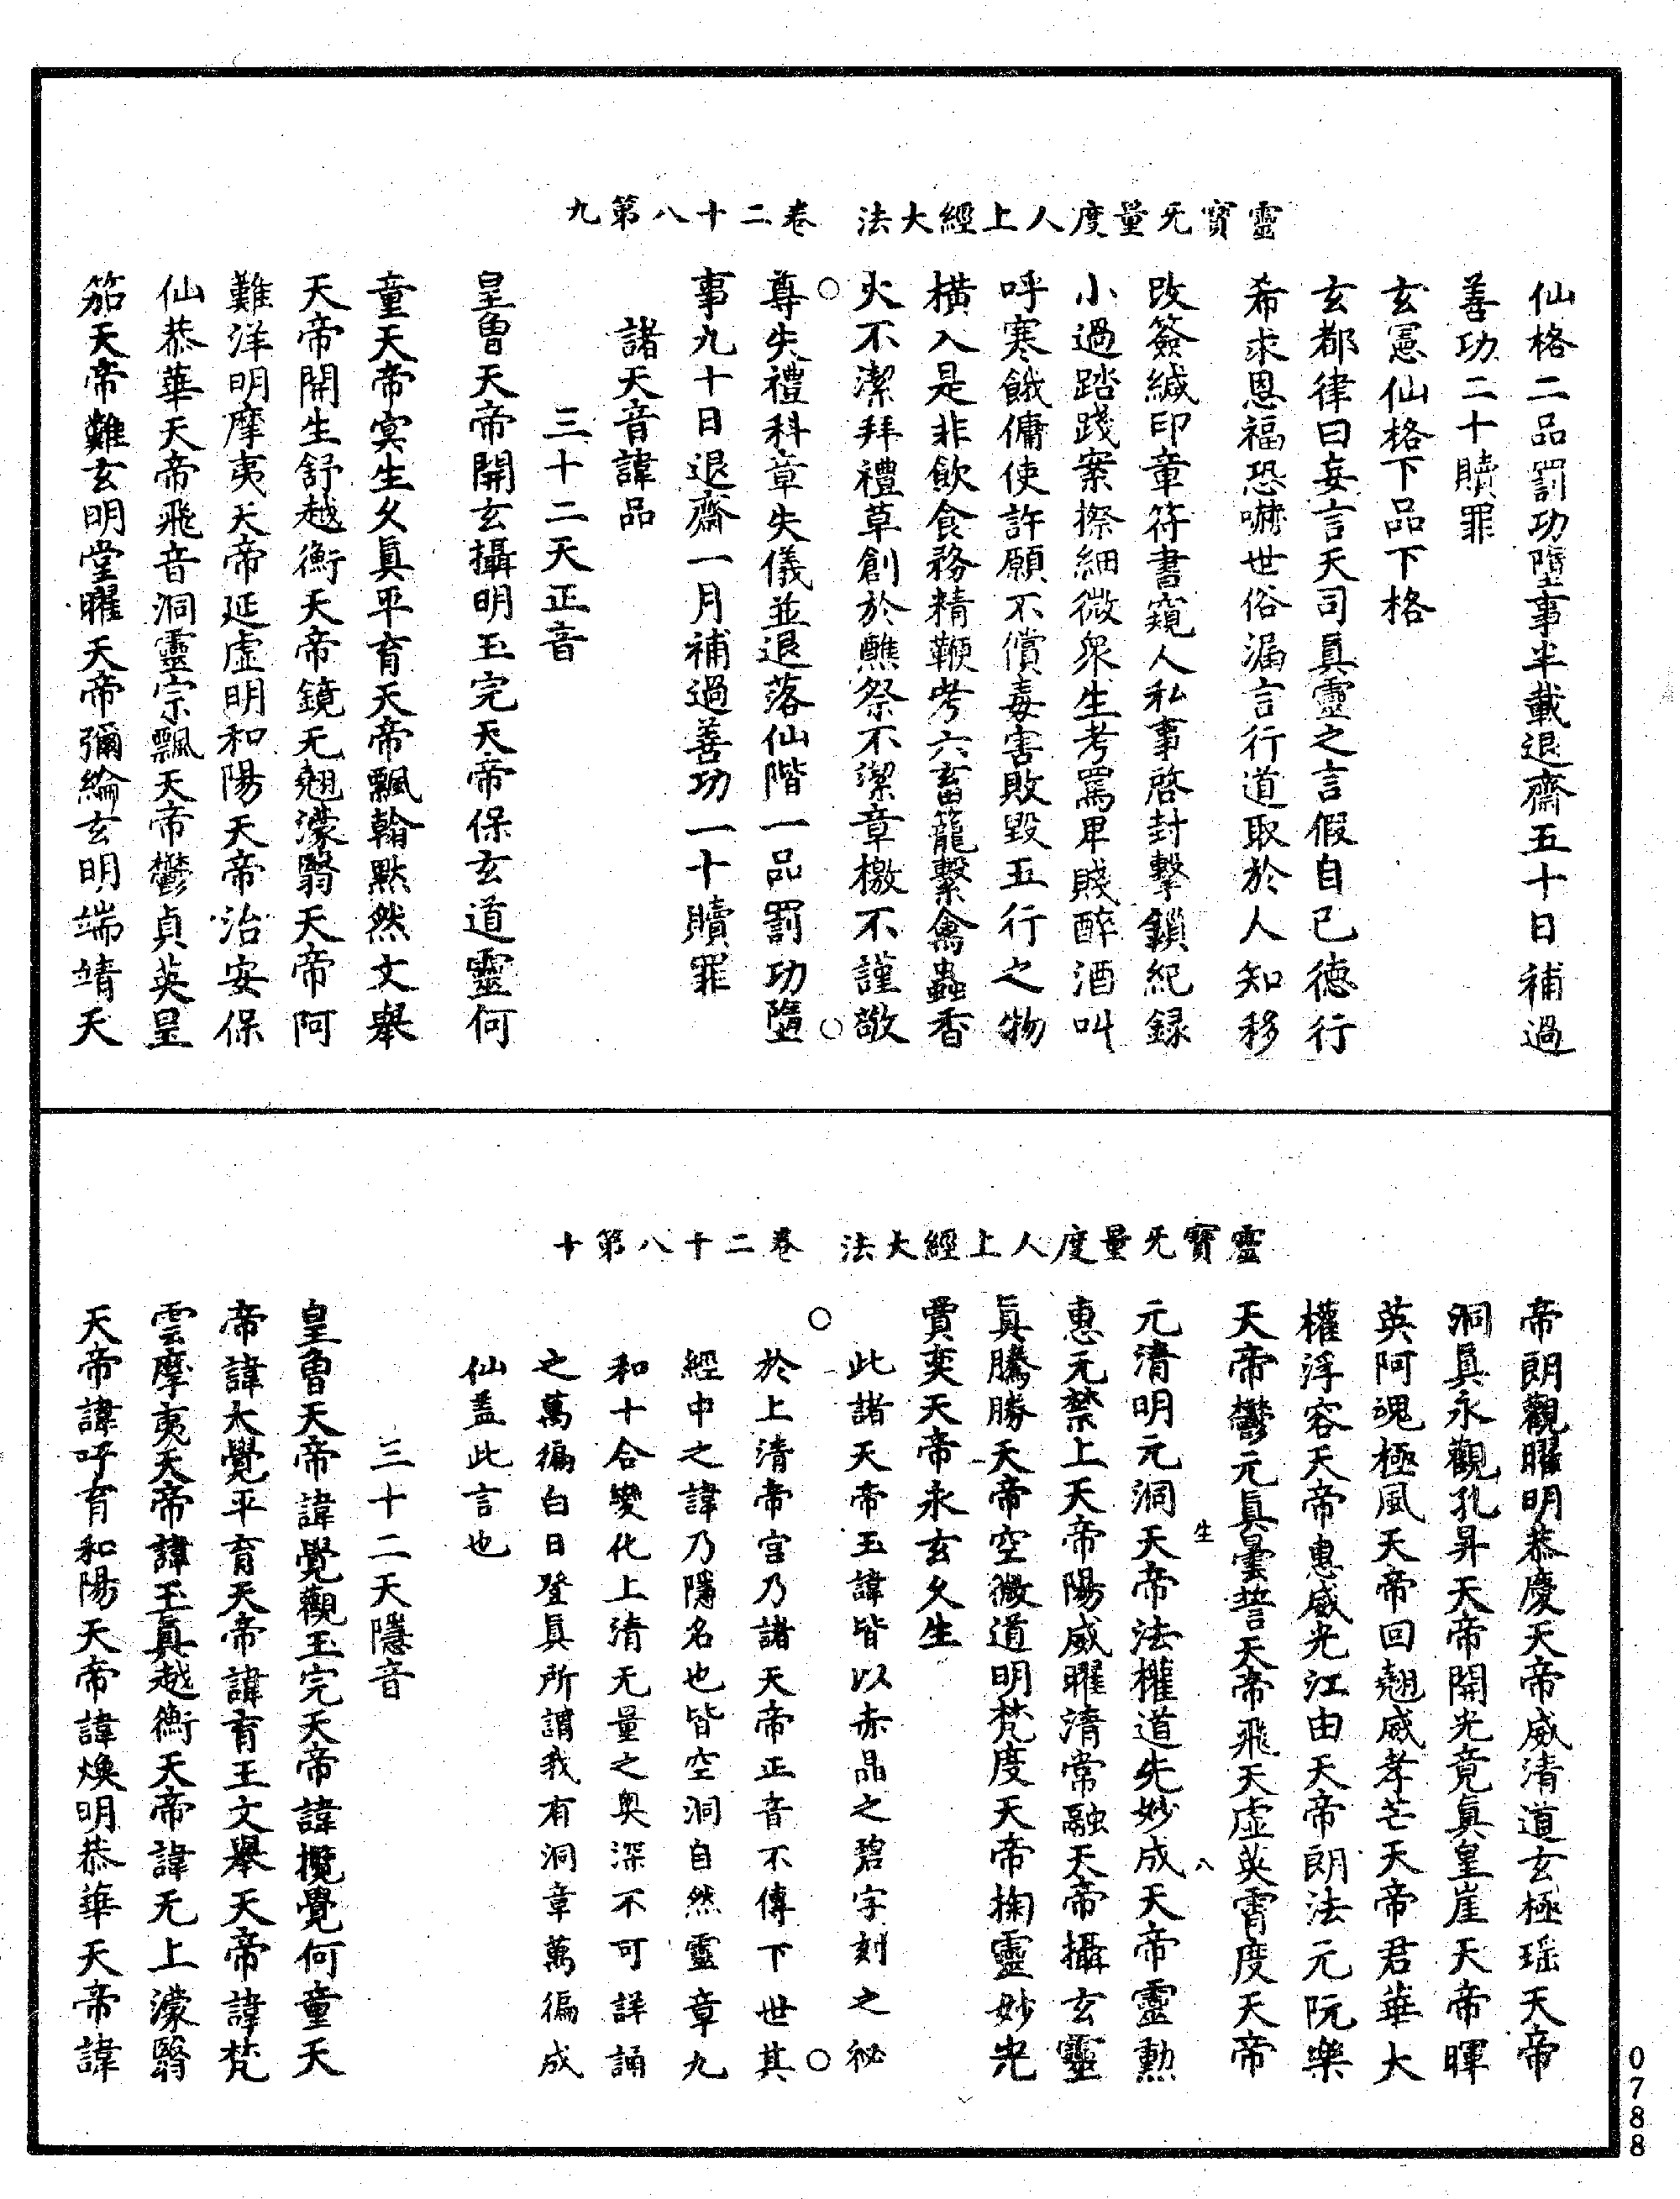 靈寶无量度人上經大法 卷二十八第九
仙格二品罰功墮事半載退齋五十日補過
善功二十贖罪
玄憲仙格下品下格
玄都律曰妄言天司眞靈之言假自已德行
希求恩福恐嚇世俗漏言行道取於人知移
改簽緘印章符書窺人私事啓封擊鎖紀録
小過踏踐案㩟細微衆生考罵卑賤醉酒叫
呼寒餓傭使許願不償毒害敗毀五行之物
橫入是非飲食務精鞭考六畜籠繫禽蟲香
火不潔拜禮草創於醮祭不潔章檄不謹敬
尊失禮科章失儀並退落仙階一品罰功墮
事九十日退齋一月補過善功一十贖罪
諸天音諱品
三十二天正音
皇曾天帝開玄攝明玉完天帝保玄道靈何
童天帝㝠生久眞平育天帝飄翰默然文舉
天帝開生舒越衡天帝鏡无翹濛翳天帝阿
難洋明摩夷天帝延虛明和陽天帝治安保
仙恭華天帝飛音洞靈宗飄天帝鬱貞英皇
笳天帝難玄明堂曜天帝彌綸玄明端靖天
靈寶无量度人上經大法 卷二十八第十
帝朗觀曜明恭慶天帝威清道玄極瑶天帝
洞眞永觀孔昇天帝開光竟眞皇崖天帝暉
英阿魂極風天帝回翹威孝芒天帝君華大
權浮容天帝惠威光江由天帝朗法元阮樂
天帝鬱元眞曇誓天帝飛天虛英霄度天帝
元清明元洞天帝法權道先妙成天帝靈勲
生 八
惠元禁上天帝陽威曜清常融天帝攝玄靈
眞騰勝天帝空微道明梵度天帝掬靈妙光
賈奕天帝永玄久生
此諸天帝玉諱皆以赤晶之碧字刻之祕
於上清帝宫乃諸天帝正音不傳下世其
經中之諱乃隱名也皆空洞自然靈章九
和十合變化上清无量之奥深不可詳誦
之萬徧白日登眞所謂我有洞章萬徧成
仙蓋此言也
三十二天隱音
皇曾天帝諱覺觀玉完天帝諱攬覺何童天
帝諱太覺平育天帝諱育王文舉天帝諱梵
雲摩夷天帝諱玉眞越衡天帝諱无上濛翳
天帝諱呼育和陽天帝諱焕明恭華天帝諱
0788